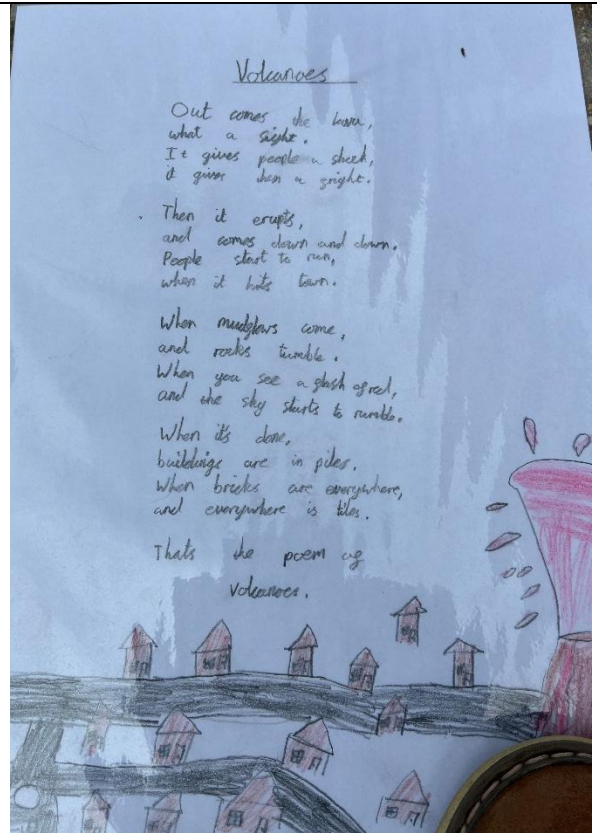 Volcanoes
Out comes the lava,
what a sight.
It gives people a shock,
it gives them a fright.
Then it erupts,
and comes down and down.
People start to run,
when it hits town.
When mudflows come,
and rocks tumble.
When you see a flash of red,
and the sky starts to rumble.
When it's done,
buildings are in piles.
When bricks are everywhere,
and everywhere is tiles.
Thats the poem of
Volcanoes.